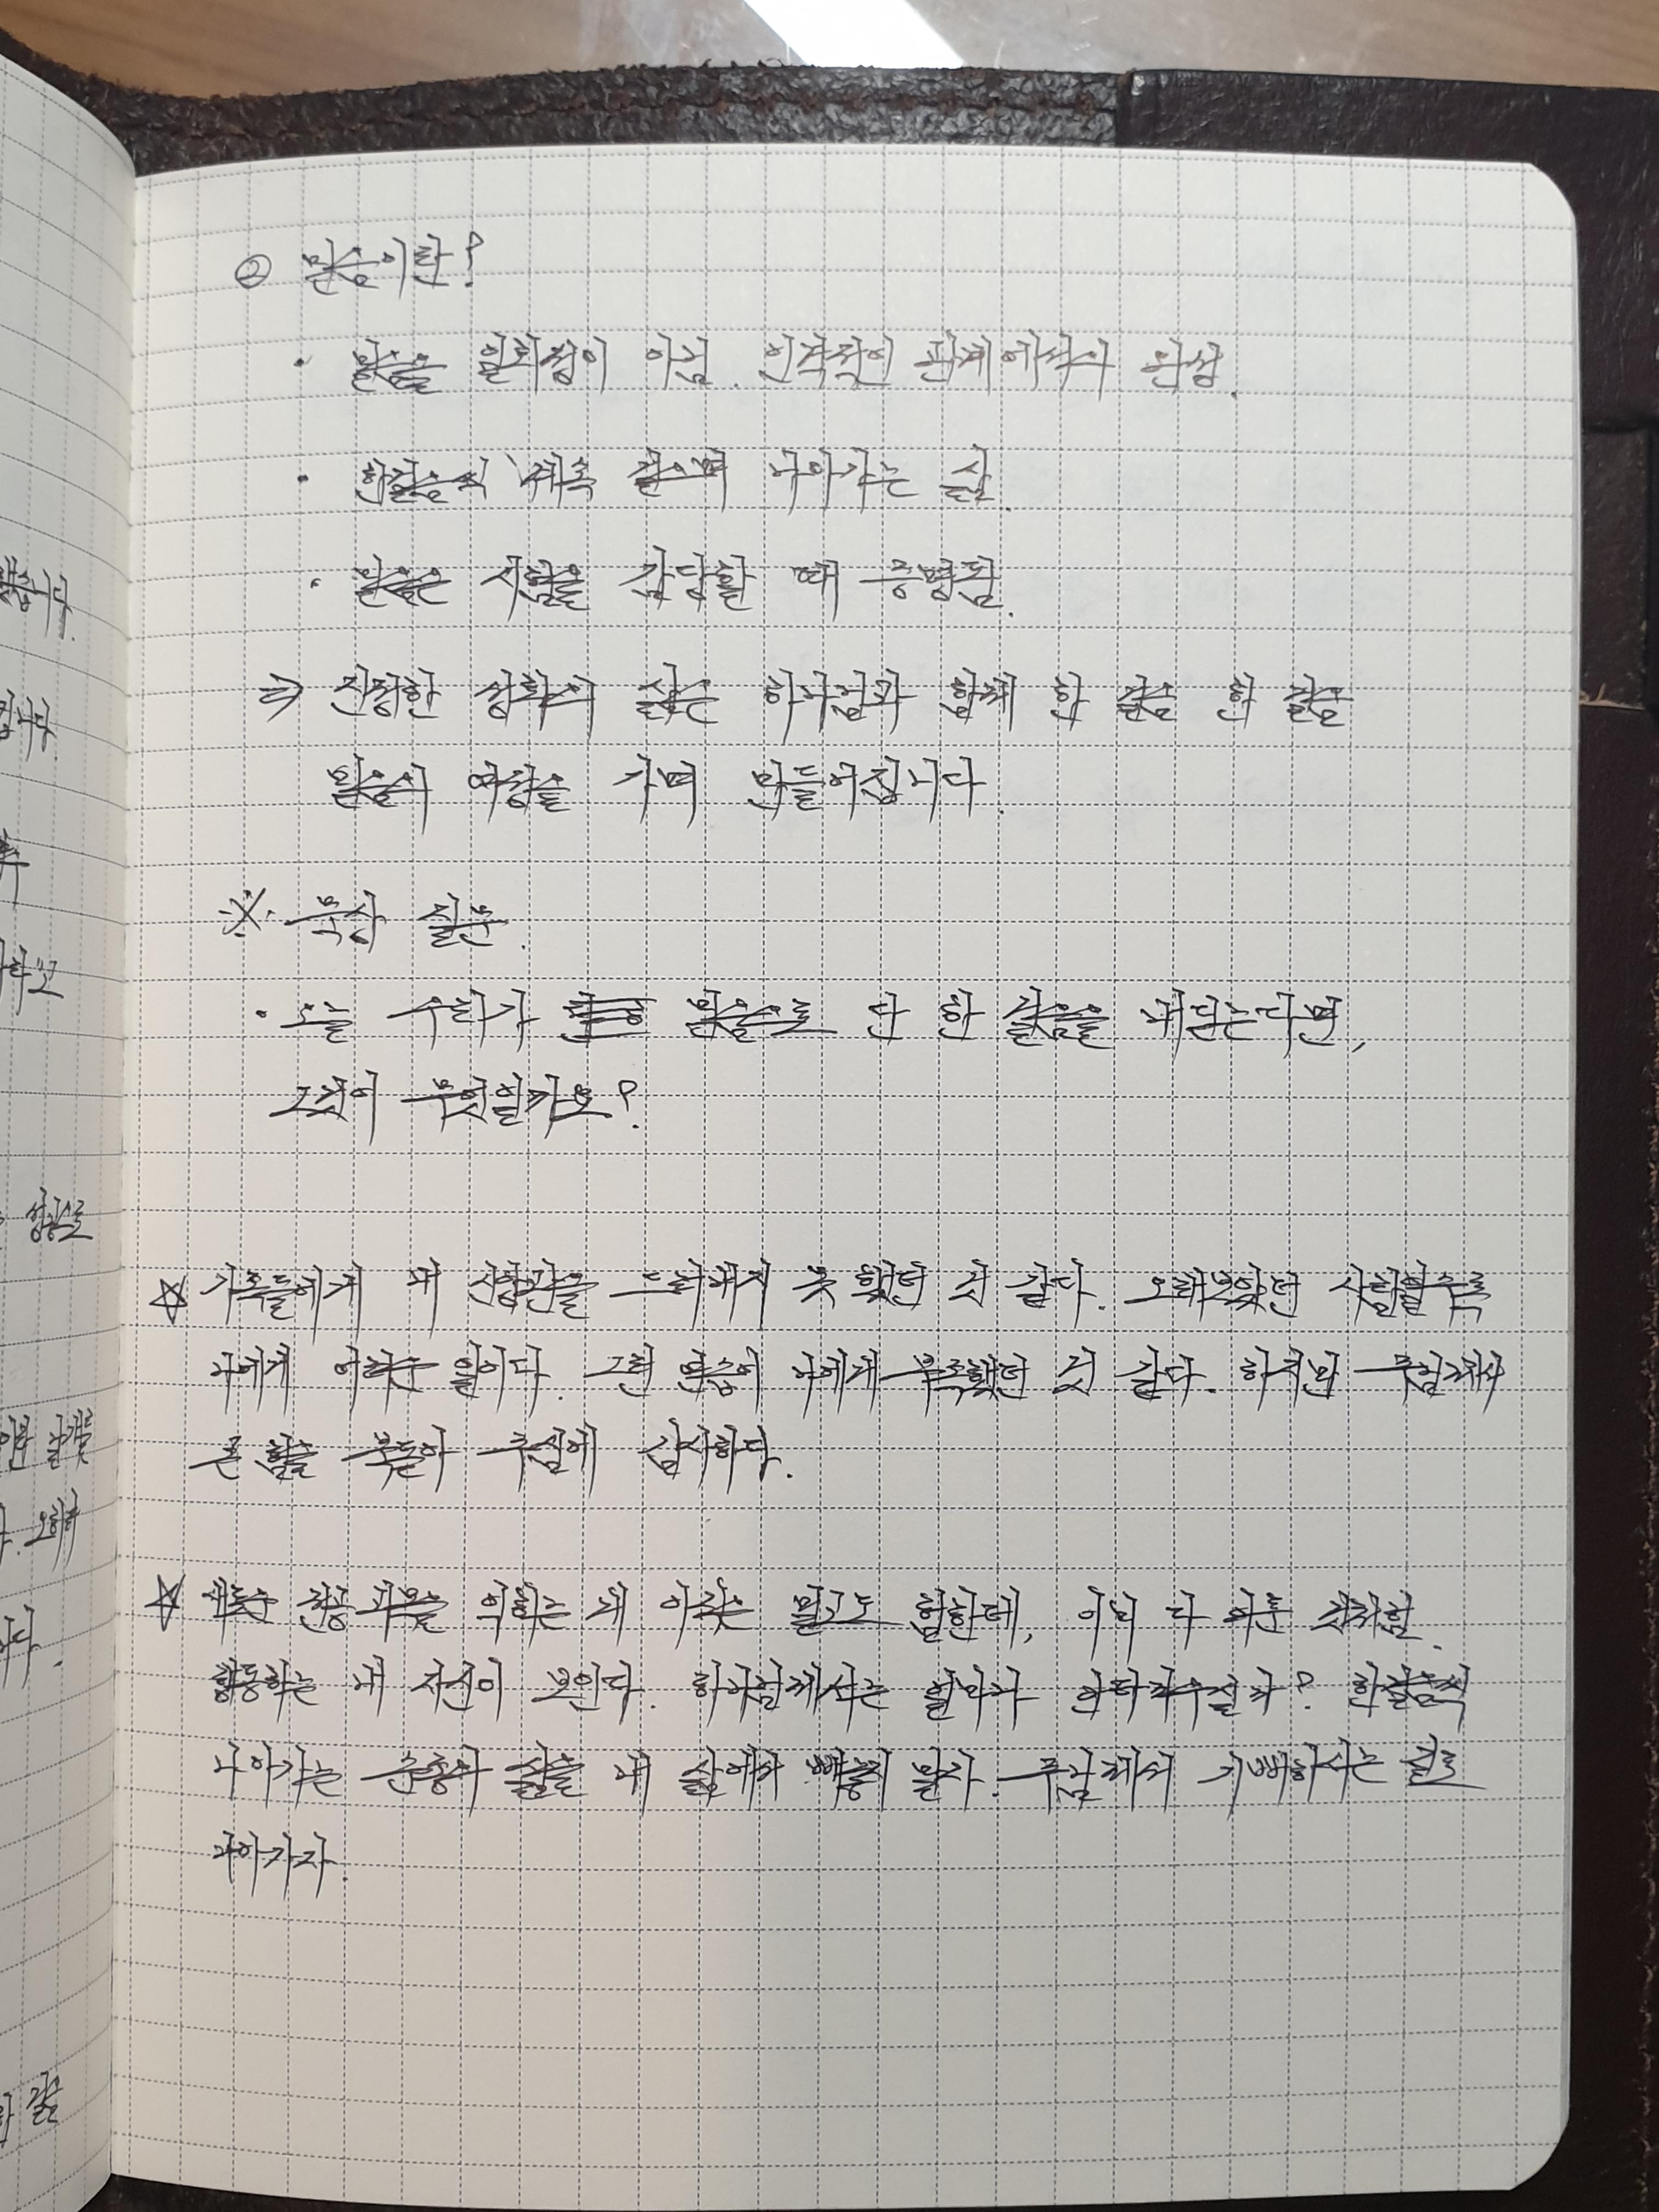 ② 믿음이란?
· 믿음은 일회성이 아님. 인격적인 관계에서의 완성.
· 한걸음씩 계속 걸으며 나아가는 삶.
· 믿음은 시험을 감당할 때 증명됨.
⇒ 진정한 성화의 삶은 하나님과 함께 한 걸음 한 걸음
믿음의 여정을 가며 만들어집니다.
※ 묵상 질문.
· 오늘 우리가 믿음으로 단 한 걸음을 내딛는다면,
그것이 무엇일까요?
☆ 가족들에게 내 신앙관을 드러내지 못 했던 것 같다. 오래보았던 사람일수록
나에게 어려운 일이다. 그런 믿음이 나에게 부족했던 것 같다. 하지만 주님께서
큰 힘을 북돋아 주심에 감사하다.
☆ 새로운 전공 과목을 익히는 게 아직은 멀고도 험한데, 이미 다 이룬 것처럼
행동하는 내 자신이 보인다. 하나님께서는 얼마나 안타까우실까? 한걸음씩
나아가는 순종의 삶을 내 삶에서 빼놓지 말자. 주님께서 기뻐하시는 길로
나아가자.
습니다.
니다.
하고
성공으로
날개를
다.
걸음